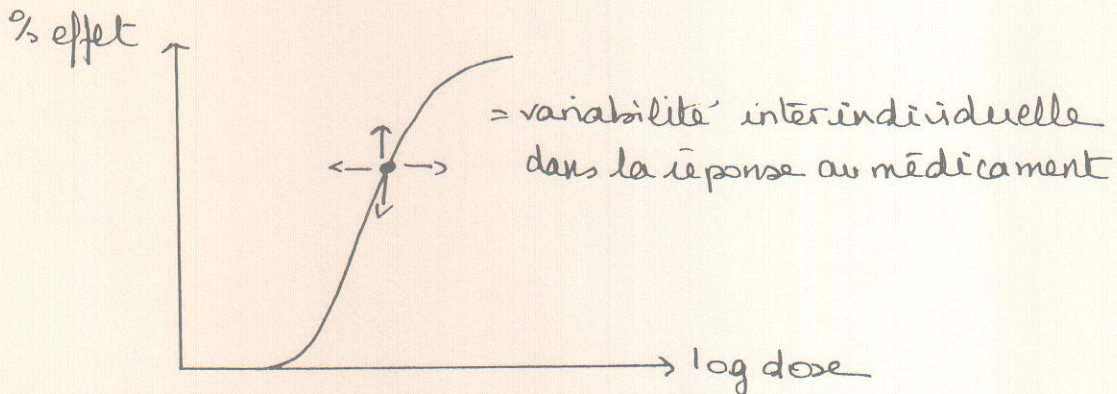 % effet
= variabilité interindividuelle
dans la réponse au médicament
log dose